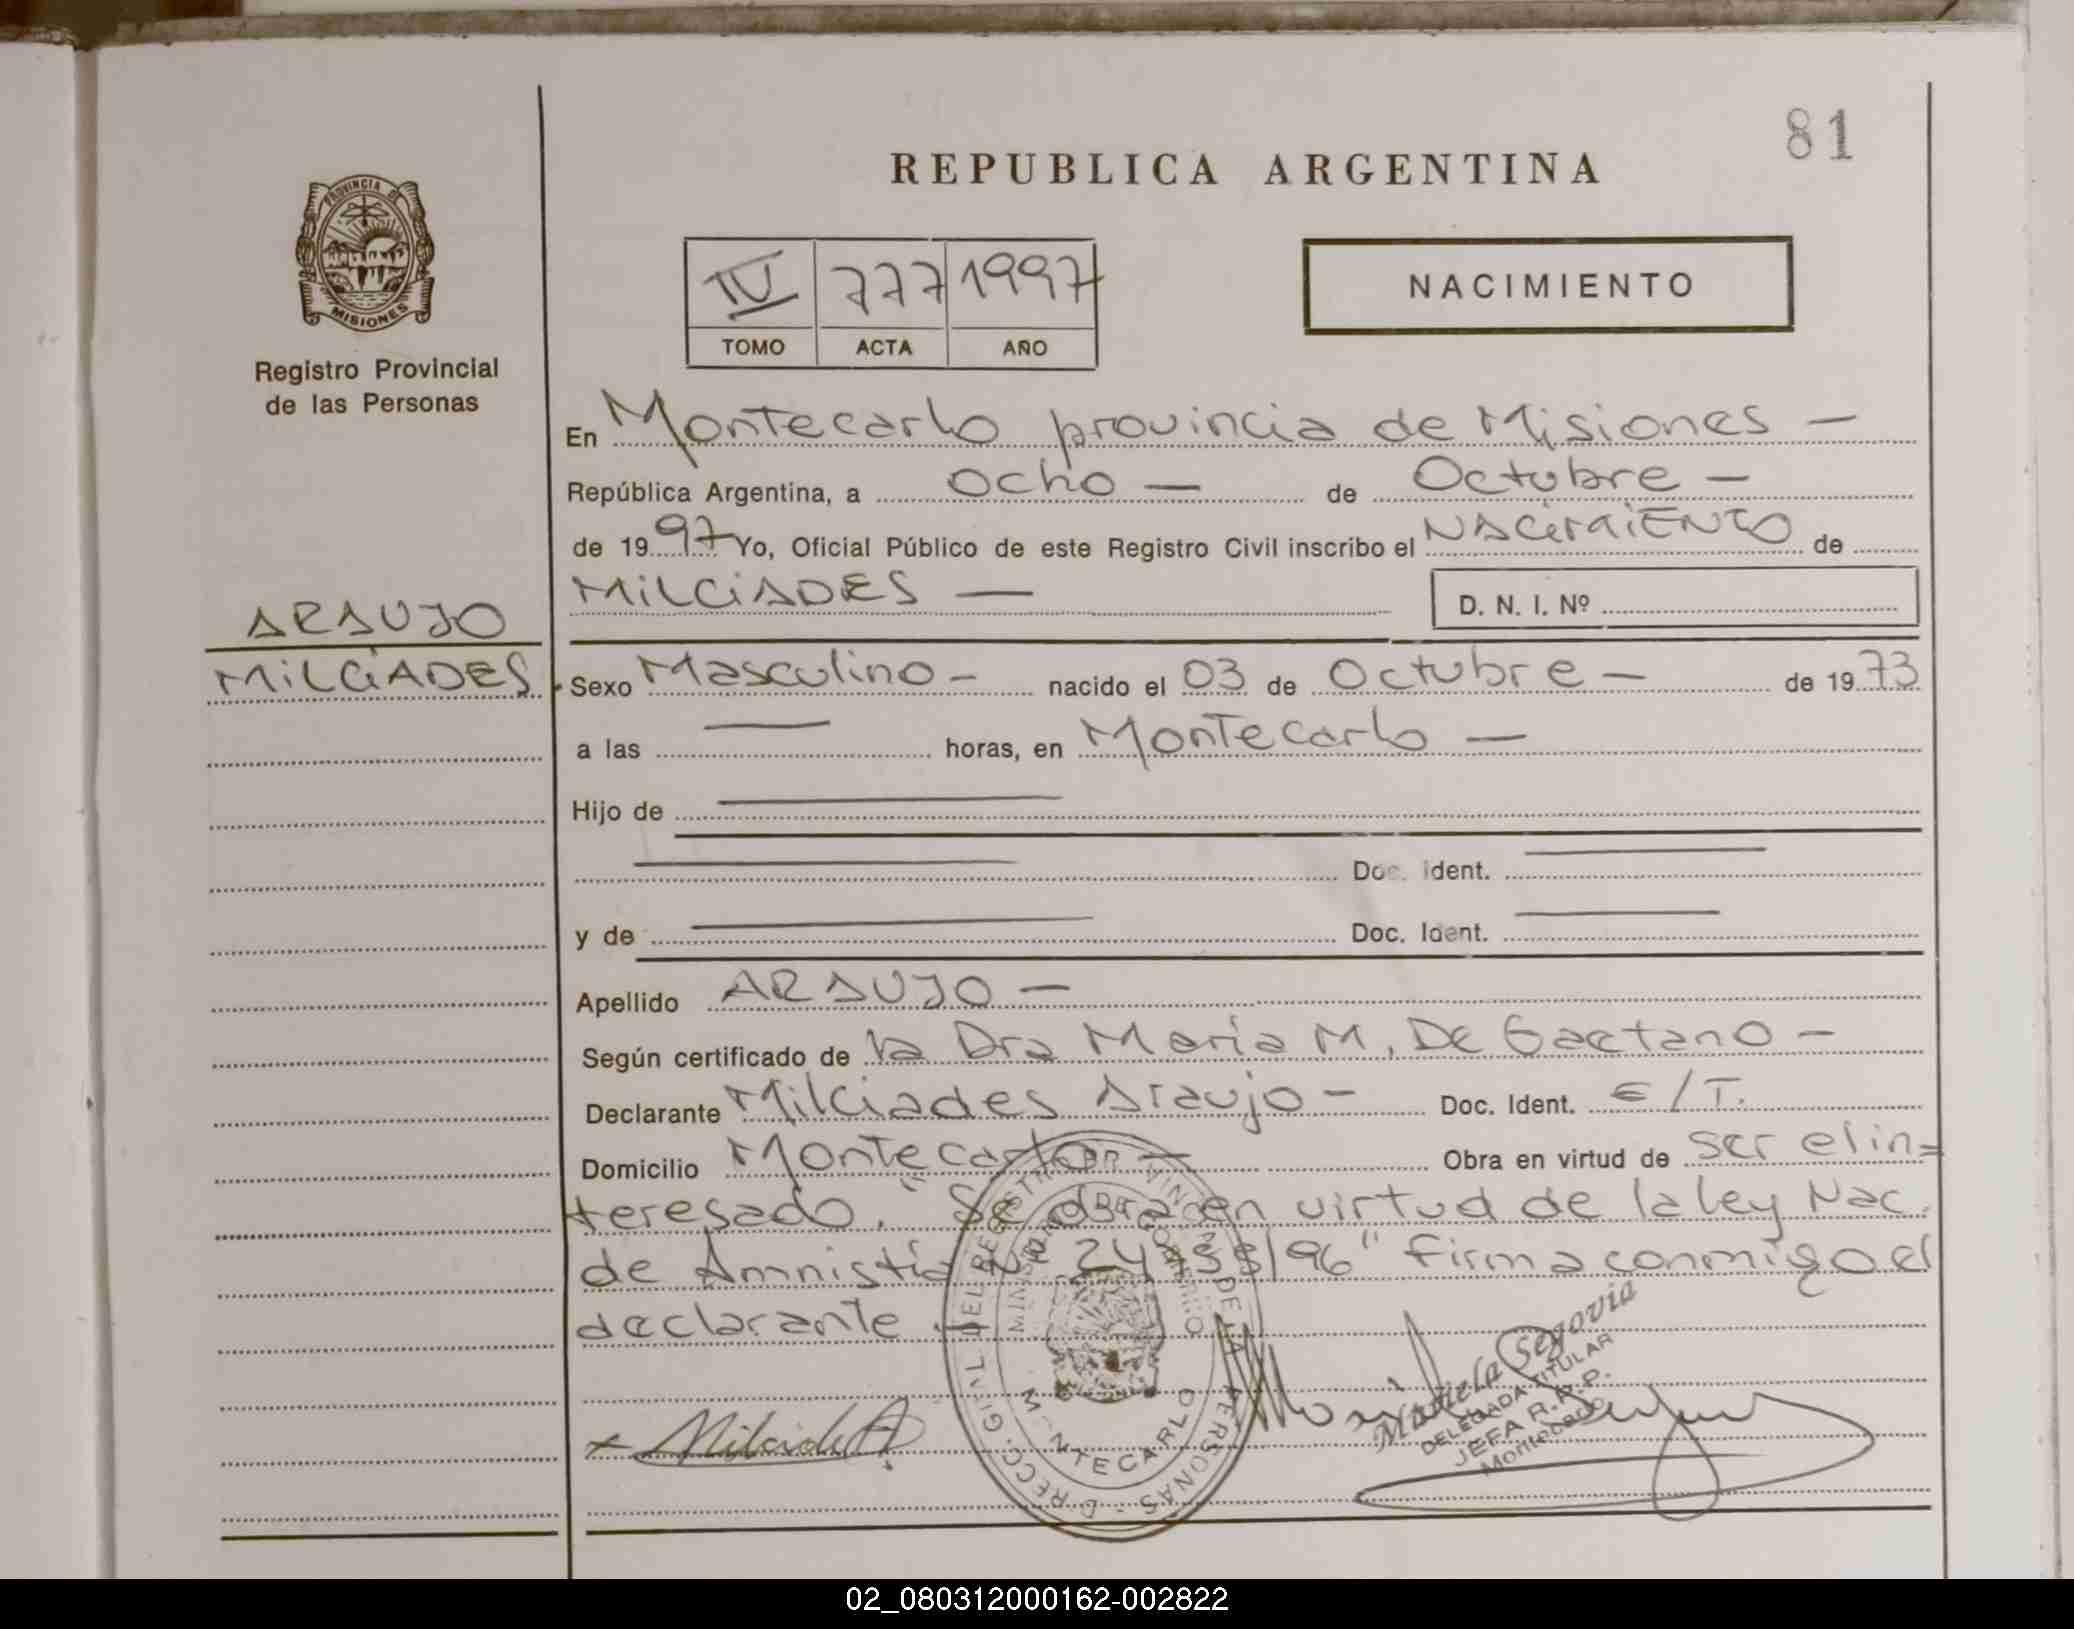 81
REPUBLICA ARGENTINA
PROVINCIA DE
MISIONES
Registro Provincial
de las Personas
IV 777 1997
TOMO ACTA AÑO
NACIMIENTO
En Montecarlo provincia de Misiones —
República Argentina, a ocho — de Octubre —
de 1997 Yo, Oficial Público de este Registro Civil inscribo el NACIMIENTO de
MILCIADES —
D. N. I. Nº
ARAUJO
MILCIADES
Sexo Masculino - nacido el 03 de Octubre — de 1973
a las — horas, en Montecarlo —
Hijo de —
— Doc. Ident. —
y de — Doc. Ident. —
Apellido ARAUJO —
Según certificado de la Dra Maria M. De Gaetano —
Declarante Milciades Araujo — Doc. Ident. E/T.
Domicilio Montecarlo — Obra en virtud de ser el in=
teresado. "Se obra en virtud de la ley Nac.
de Amnistía Nº 24755/96" Firma conmigo el
declarante.
DIRECC. GRAL. DEL REGISTRO PROVINCIAL DE LA PERSONAS
MINISTERIO DE GOBIERNO
MONTECARLO
Mariela Segovia
DELEGADA TITULAR
JEFA R.P.P.
Montecarlo
02_080312000162-002822